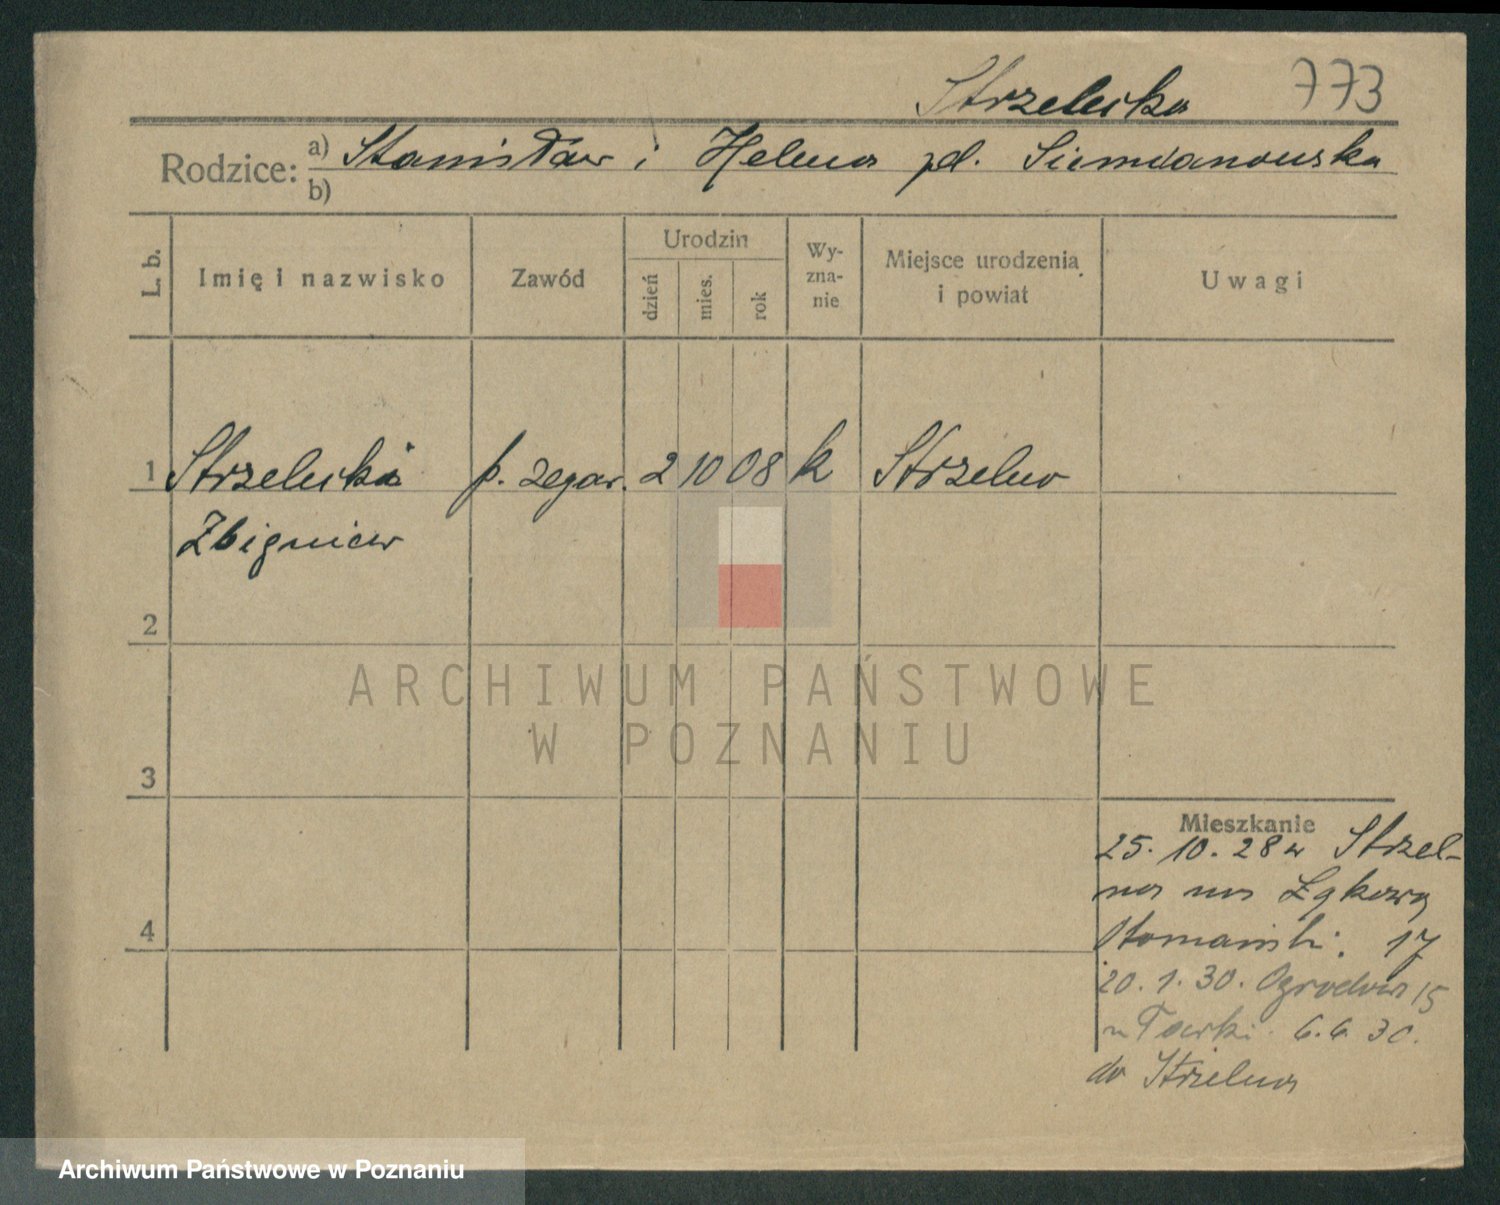 Strzelecka 773
Rodzice: a) Stanisław i Helena zd. Siemianowska
b)
L. b. Imię i nazwisko Zawód Urodzin dzień mies. rok Wy-zna-nie Miejsce urodzenia i powiat Uwagi
1 Strzelecki p. zegar. 2 10 08 k Strzelno
Zbigniew
2
ARCHIWUM PAŃSTWOWE
W POZNANIU
3
Mieszkanie
25. 10. 28 w Strzel-
na na Łąkową
4 17
20. 1. 30. Ogrodowa 15
6. 6. 30.
do Strzelna
Archiwum Państwowe w Poznaniu